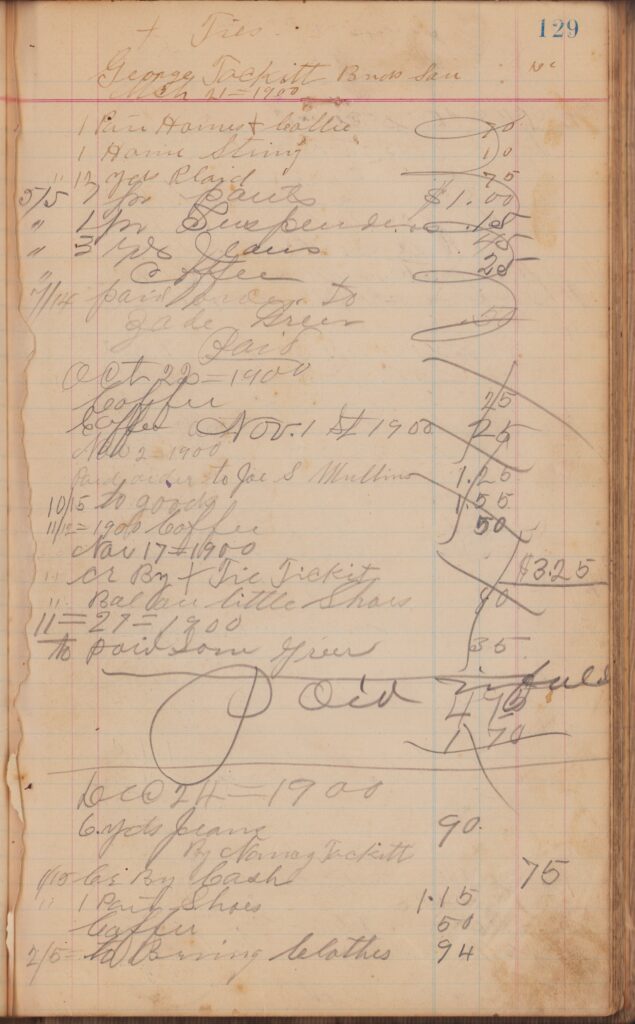 129
+ Ties
George Tackitt Buds Son
Mch 21 = 1900
1 Pair Homes & Collie 70
1 Home String 10
" 12 yds Plaid 75
5/5 7 pr pants $1.00
" 1 pr Suspenders
" 3 yds Jeans 45
" Coffee 25
7/14 paid order to
Zade Greer 50
Paid
Oct 22 = 1900
Coffee 25
Coffee Nov. 1 st 1900 25
Nov 2 1900
Paid order to Joe S Mullins 1.25
10/15 to goods 1.55
11/12 = 1900 Coffee 50
Nov 17 = 1900
" cr By + Tie Tickit $3.25
" Bal on little Shoes 80
11 = 27 = 1900
to paid Som Greer 35
Paid in full
4
1 70
Dec 24 = 1900
6 yds Jeans 90.
By Nancy Tackitt
Cr By Cash 75
" 1 Pair Shoes 1.15
Coffee 50
2/5 = to Clothes 94